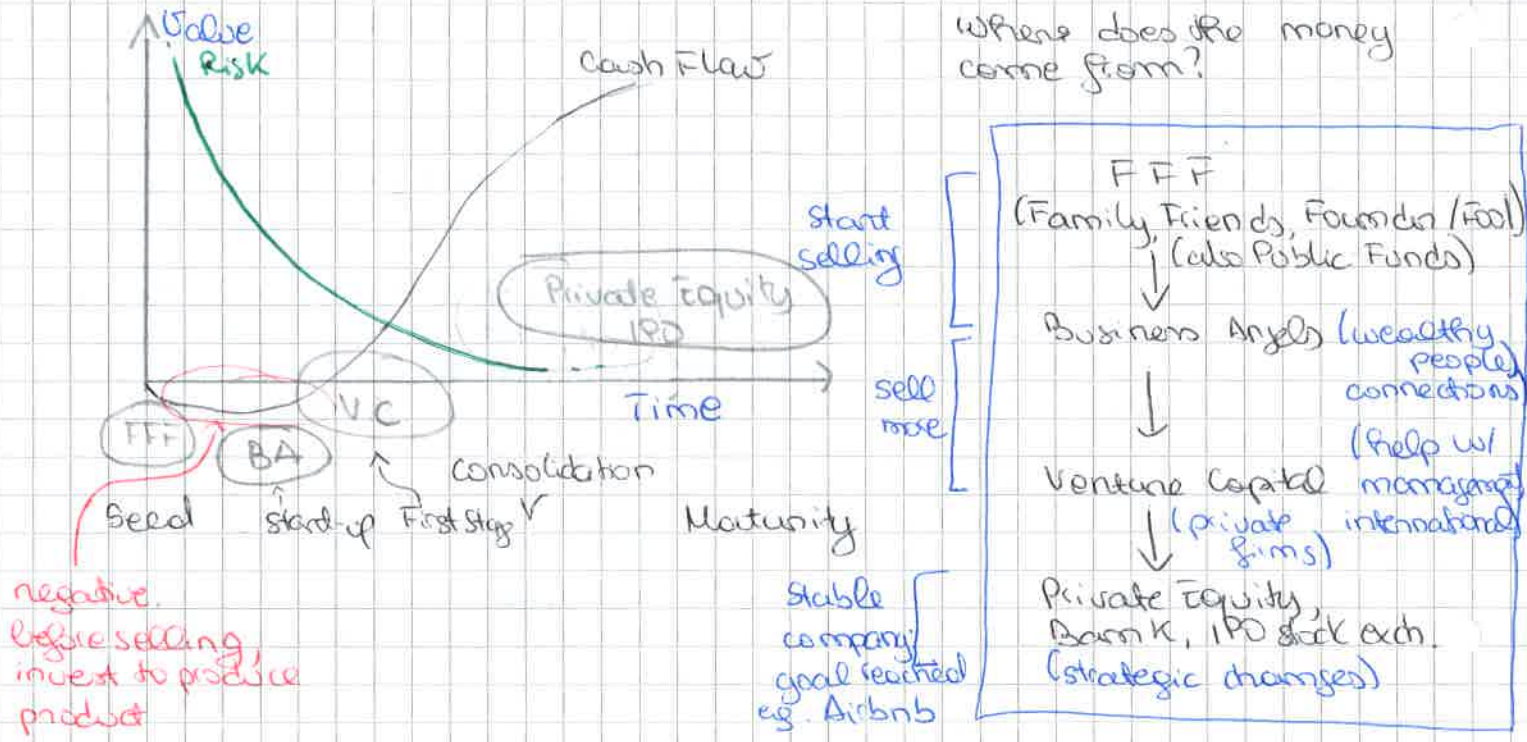 Value
Risk
Cash Flow
Private Equity
IPO
Time
FFF
BA
VC
Consolidation
Seed
start-up
First Stage
Maturity
negative.
before selling,
invest to produce
product
Where does the money
come from?
start
selling
sell
more
stable
company
goal reached
eg. Airbnb
FFF
(Family, Friends, Founder/Fool)
(also Public Funds)
Business Angels (wealthy
people)
connections
(help w/
Venture Capital management
(private international)
firms)
Private Equity,
Bank, IPO stock exch.
(strategic changes)